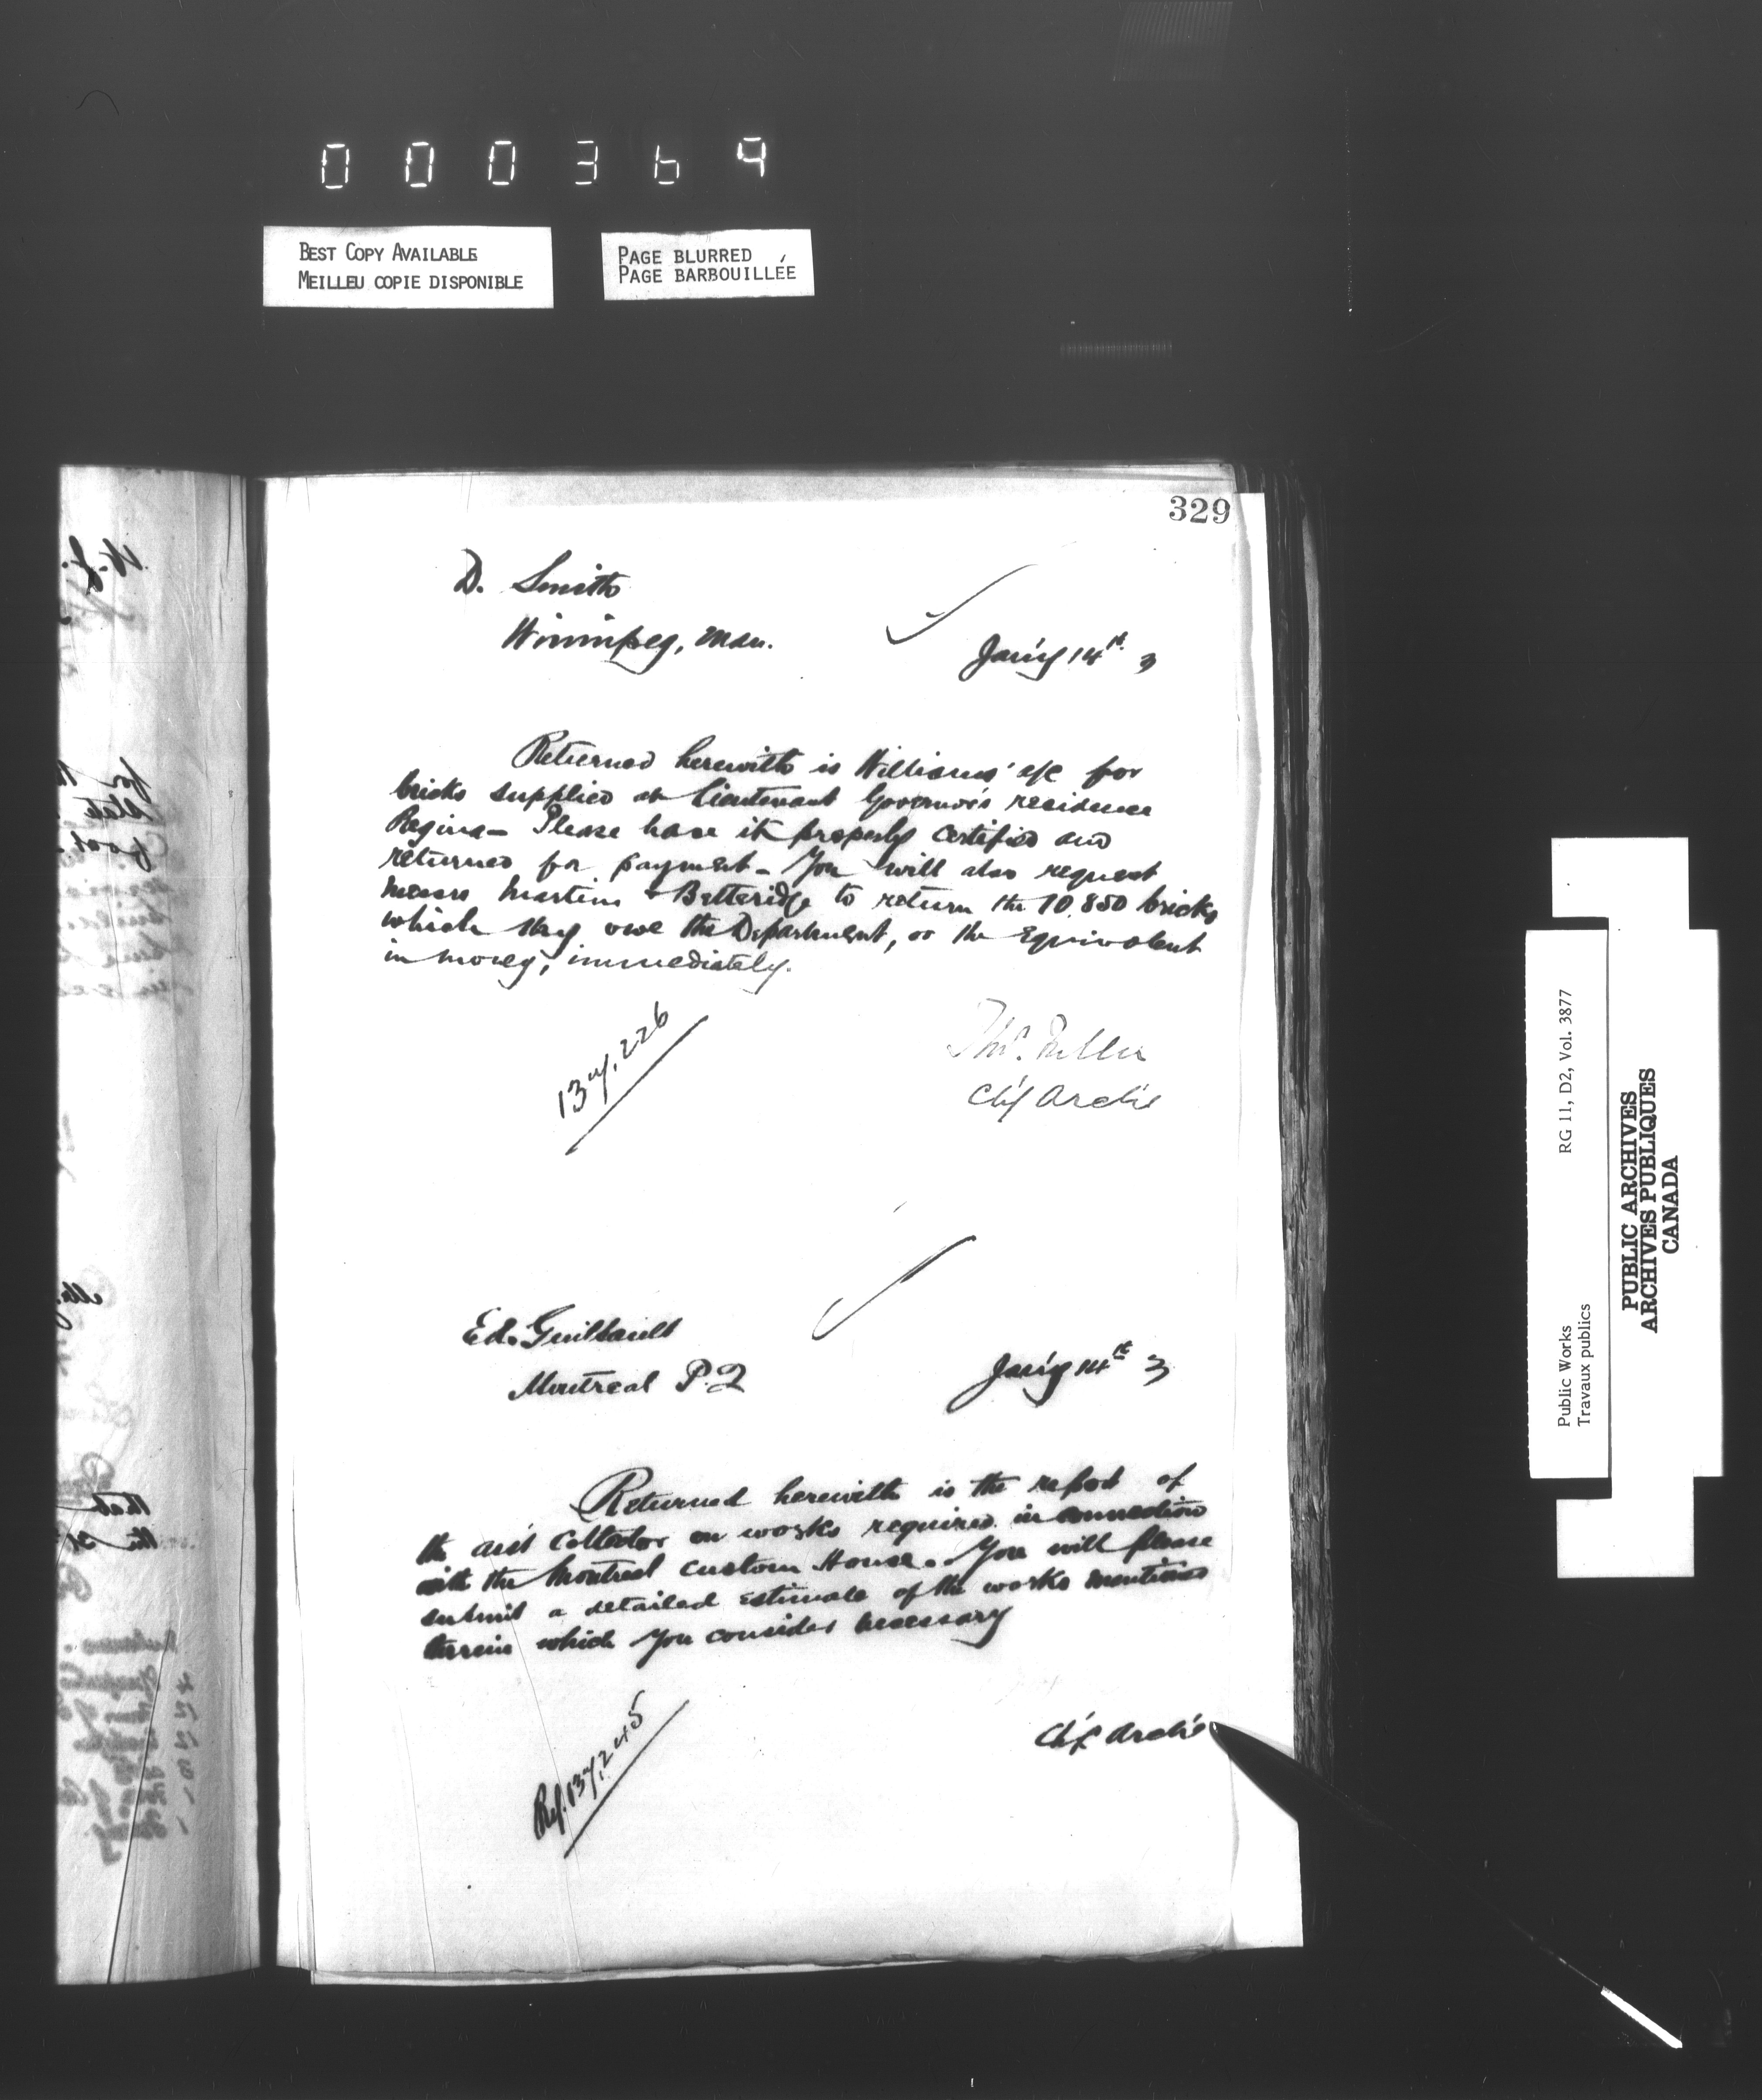 000369
BEST COPY AVAILABLE
MEILLEU COPIE DISPONIBLE
PAGE BLURRED
PAGE BARBOUILLÉE
329
D. Smith
Winnipeg, Man.
Jan'y 14th 3
Returned herewith is Williams' a/c for
bricks supplied at Lieutenant Governor's residence
Regina - Please have it properly certified and
returned for payment - You will also request
Messrs Martin & Betteridge to return the 10,850 bricks
which they owe the Department, or the equivalent
in money, immediately.
137,226
Thos. Fuller
Ch'f Arch't
Ed. Guilbault
Montreal P.Q
Jan'y 14th 3
Returned herewith is the report of
the ass't Collector on works required in connection
with the Montreal Custom House. You will please
submit a detailed estimate of the works mentioned
therein which you consider necessary
Ch'f Arch't
Ref. 137,245
Public Works
Travaux publics
RG 11, D2, Vol. 3877
PUBLIC ARCHIVES
ARCHIVES PUBLIQUES
CANADA